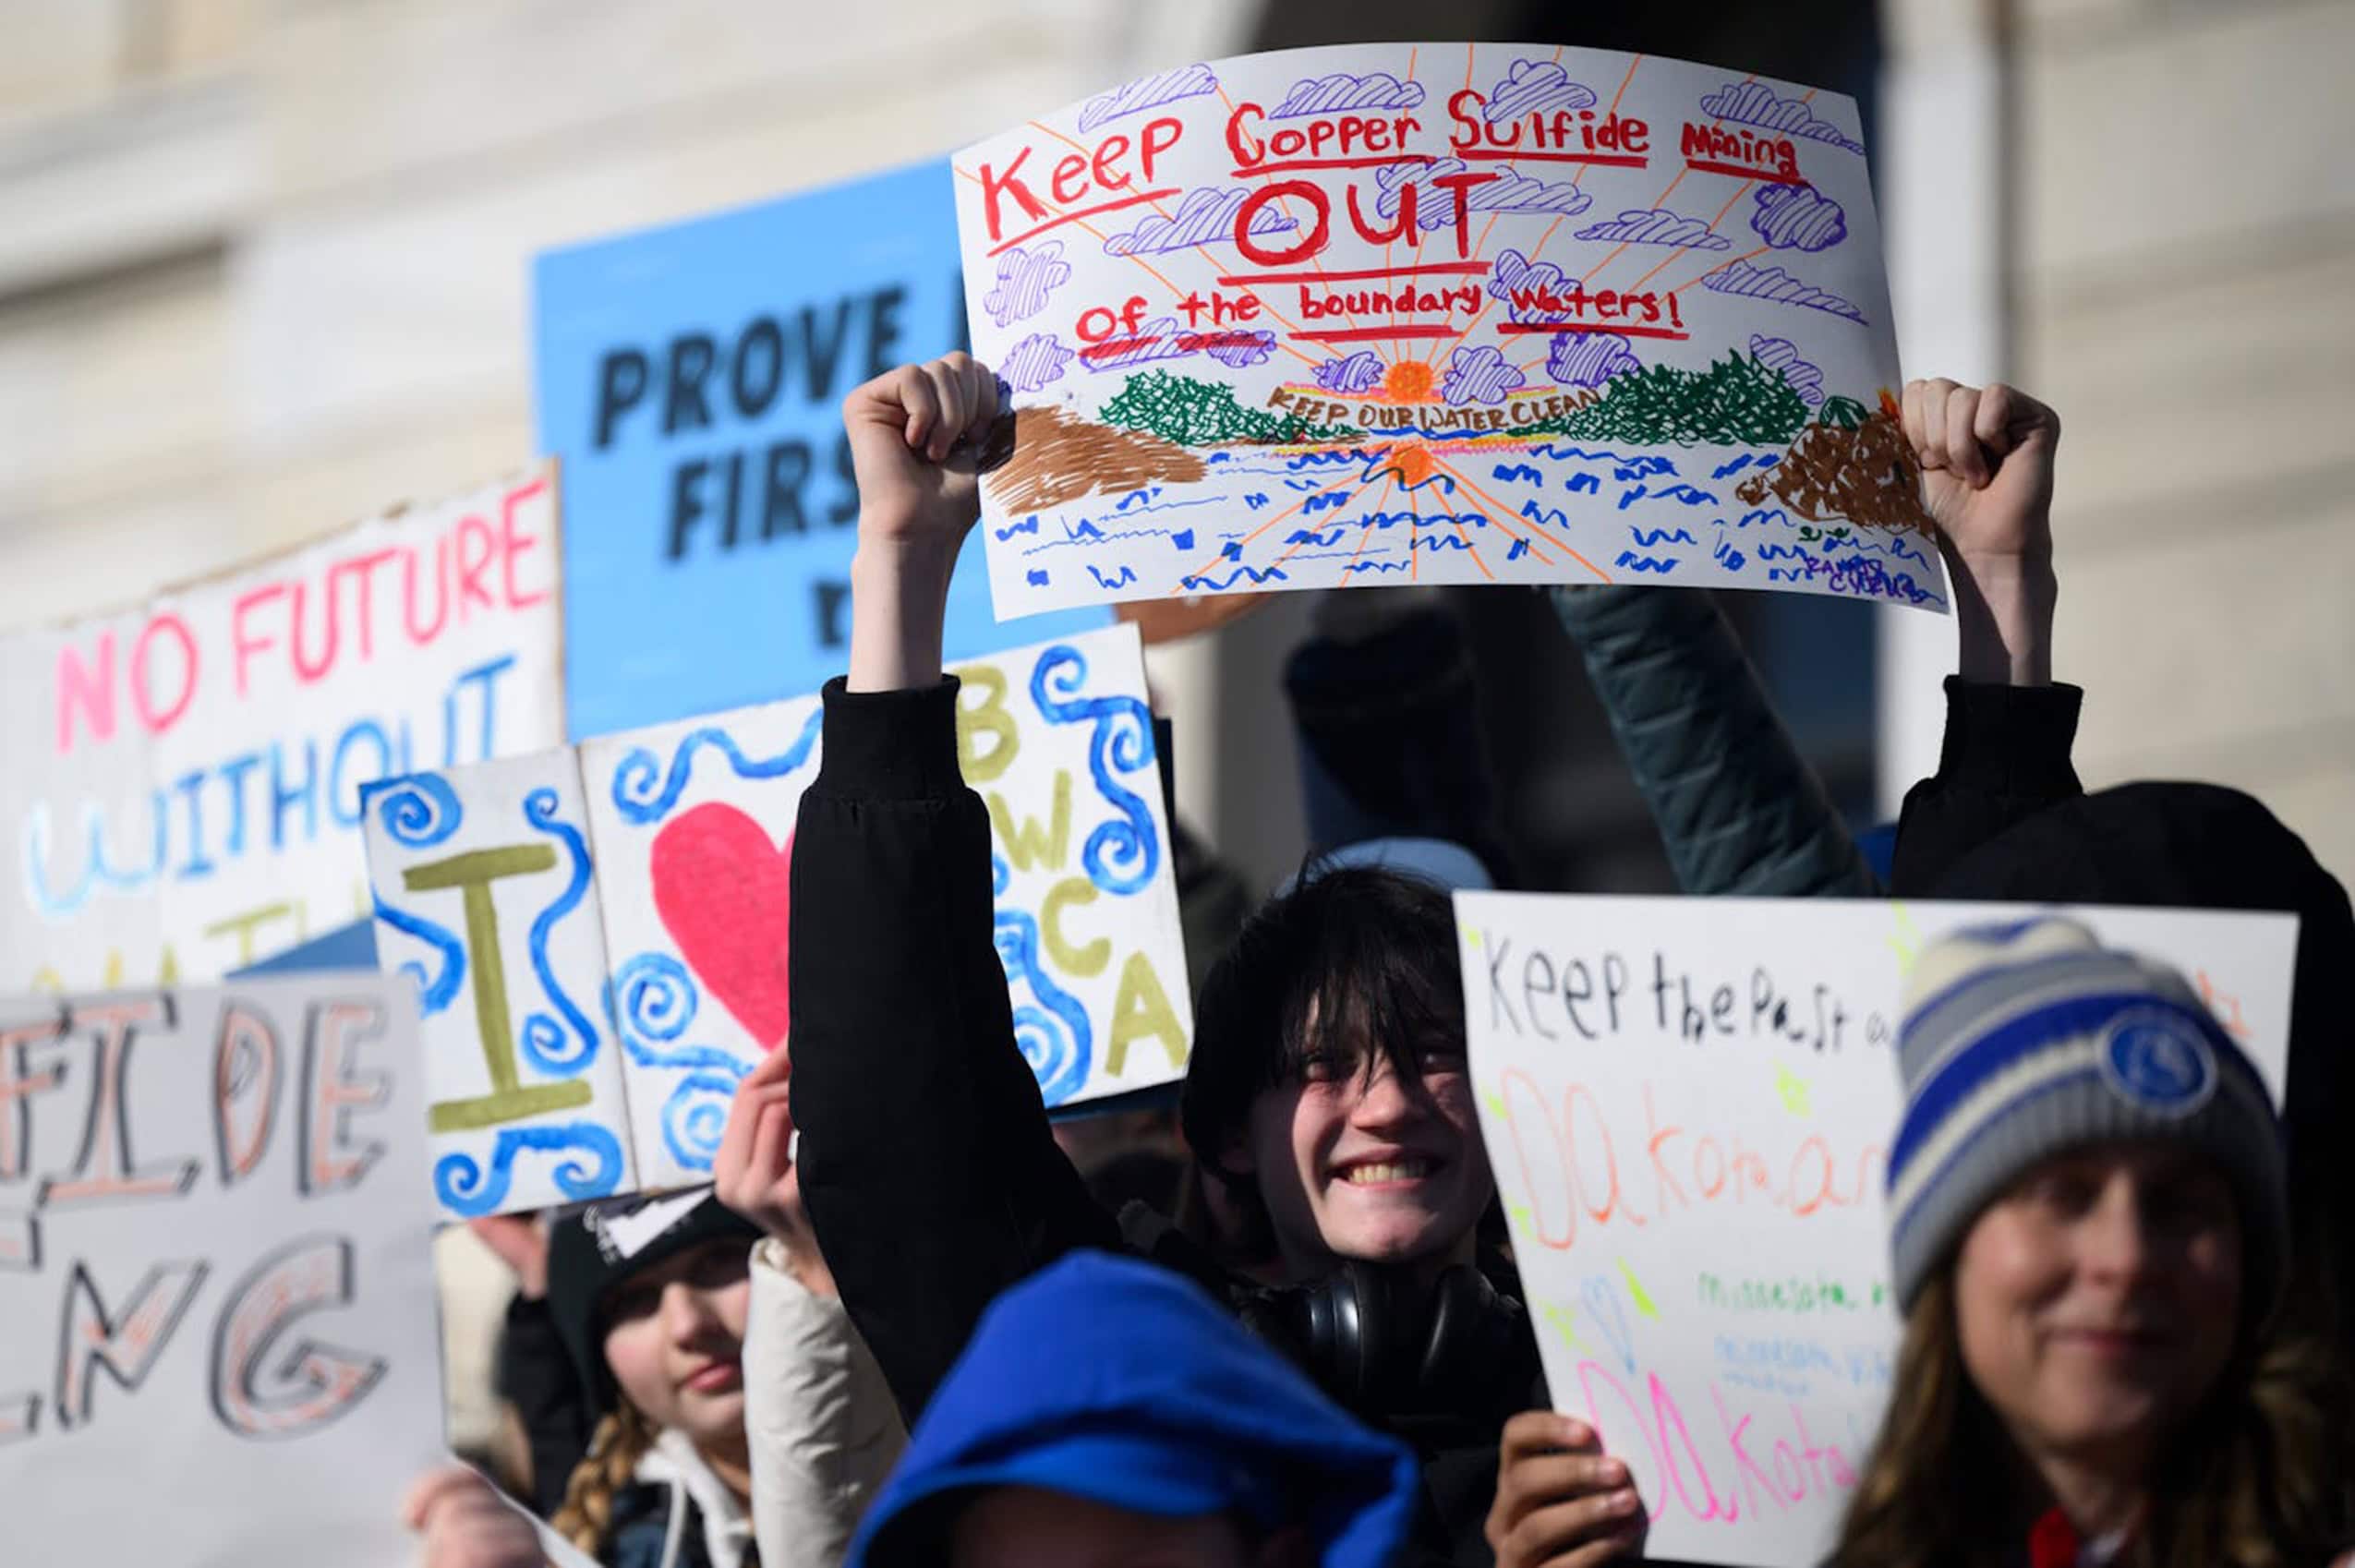 Keep Copper Sulfide Mining
OUT
of the boundary waters!
KEEP OUR WATER CLEAN
PROVE
FIRS
NO FUTURE
WITHOUT
I
B
W
C
A
FIDE
NG
Keep the Past
Dakota
minnesota
Dakota